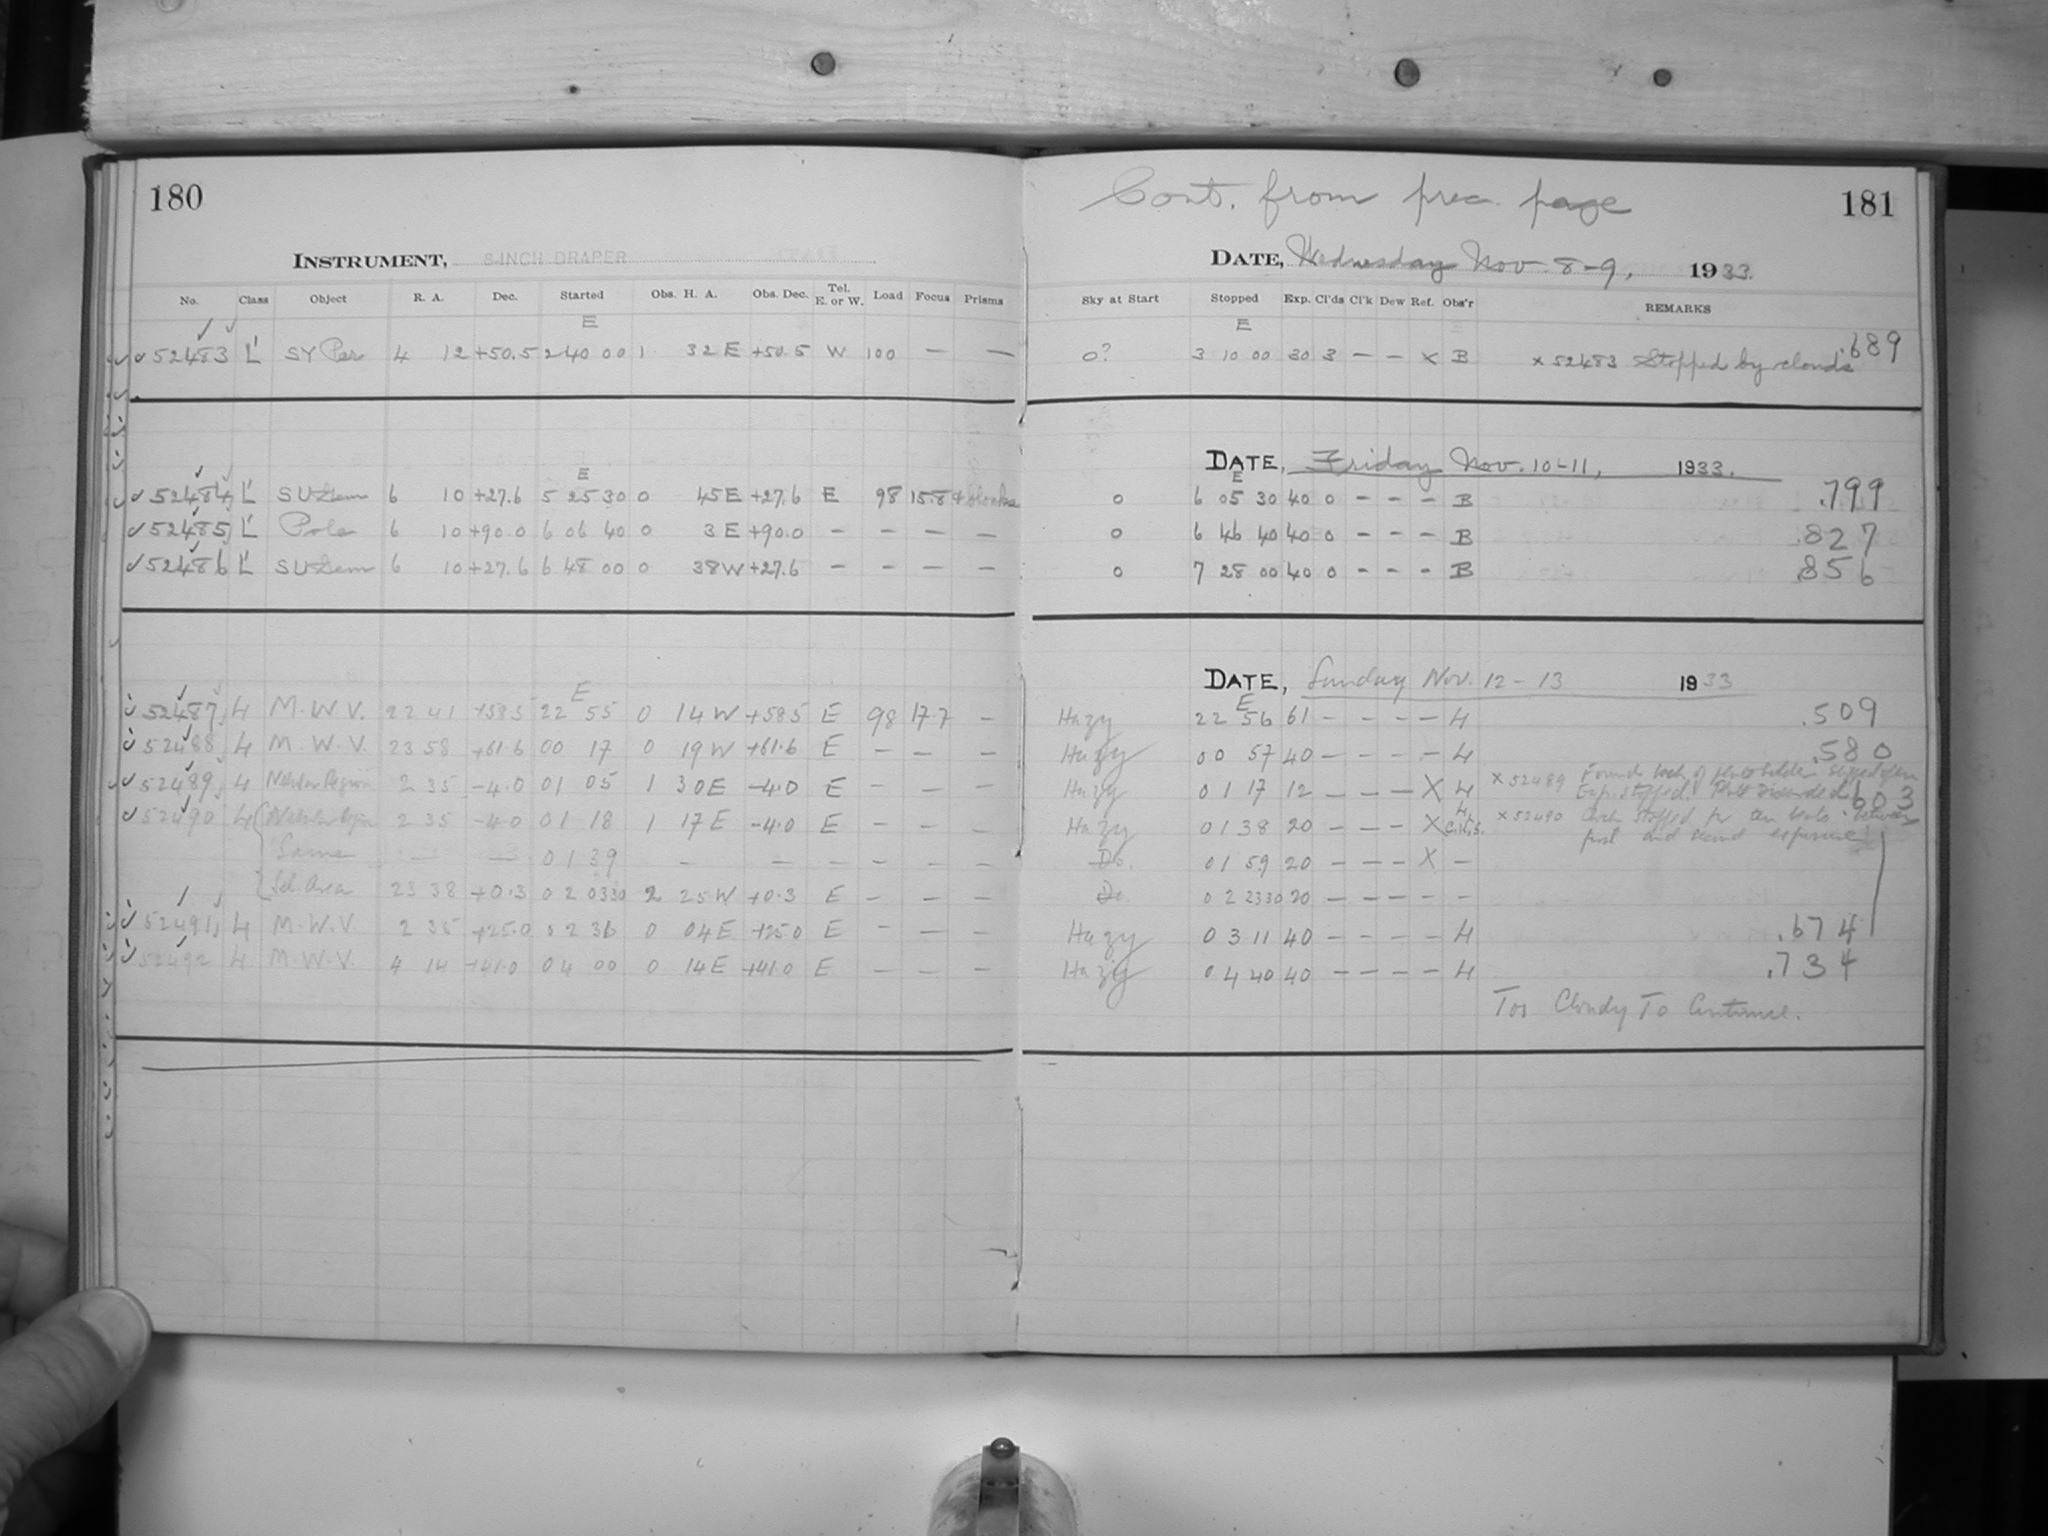 180
INSTRUMENT, 8-INCH DRAPER
No. Class Object R. A. Dec. Started Obs. H. A. Obs. Dec. Tel. E. or W. Load Focus Prisms
E
52483 L' SY Per 4 12 +50.5 2 40 00 1 32 E +50.5 W 100 — —
E
52484 L' SU Gem 6 10 +27.6 5 25 30 0 45 E +27.6 E 98 15.8 4 blocks
52485 L' Pole 6 10 +90.0 6 06 40 0 3 E +90.0 — — — —
52486 L' SU Gem 6 10 +27.6 6 48 00 0 38 W +27.6 — — — —
E
52487 4 M.W.V. 22 41 +58.5 22 55 0 14 W +58.5 E 98 17.7 —
52488 4 M.W.V. 23 58 +61.6 00 17 0 19 W +61.6 E — — —
52489 4 Region 2 35 -4.0 01 05 1 30 E -4.0 E — — —
52490 4 2 35 -4.0 01 18 1 17 E -4.0 E — — —
Same — — 01 39 — — — — — —
Sel. Area 23 38 +0.3 02 03 30 2 25 W +0.3 E — — —
52491 4 M.W.V. 2 35 +25.0 02 36 0 04 E +25.0 E — — —
52492 4 M.W.V. 4 14 +41.0 04 00 0 14 E +41.0 E — — —
Cont. from prec. page
181
DATE, Wednesday Nov 8-9, 1933.
Sky at Start Stopped Exp. Cl'ds Cl'k Dew Ref. Obs'r REMARKS
E
0? 3 10 00 30 3 — — X B x 52483 Stopped by clouds .689
DATE, Friday Nov. 10-11, 1933.
E
0 6 05 30 40 0 - - - B .799
0 6 46 40 40 0 - - - B .827
0 7 28 00 40 0 - - - B .856
DATE, Sunday Nov. 12-13 1933
E
Hazy 22 56 61 - - - - 4 .509
Hazy 00 57 40 - - - - 4 .580
Hazy 01 17 12 - - - X 4 x 52489 Found back of plate holder
Exp. stopped. Plate Discarded .603
Hazy 01 38 20 - - - X 4 C.H.S. x 52490 Clock stopped for ten between
first and second exposure
Do. 01 59 20 - - - X -
Do. 02 23 30 20 - - - - -
Hazy 03 11 40 - - - - 4 .674
Hazy 04 40 40 - - - - 4 .734
Too Cloudy To Continue.